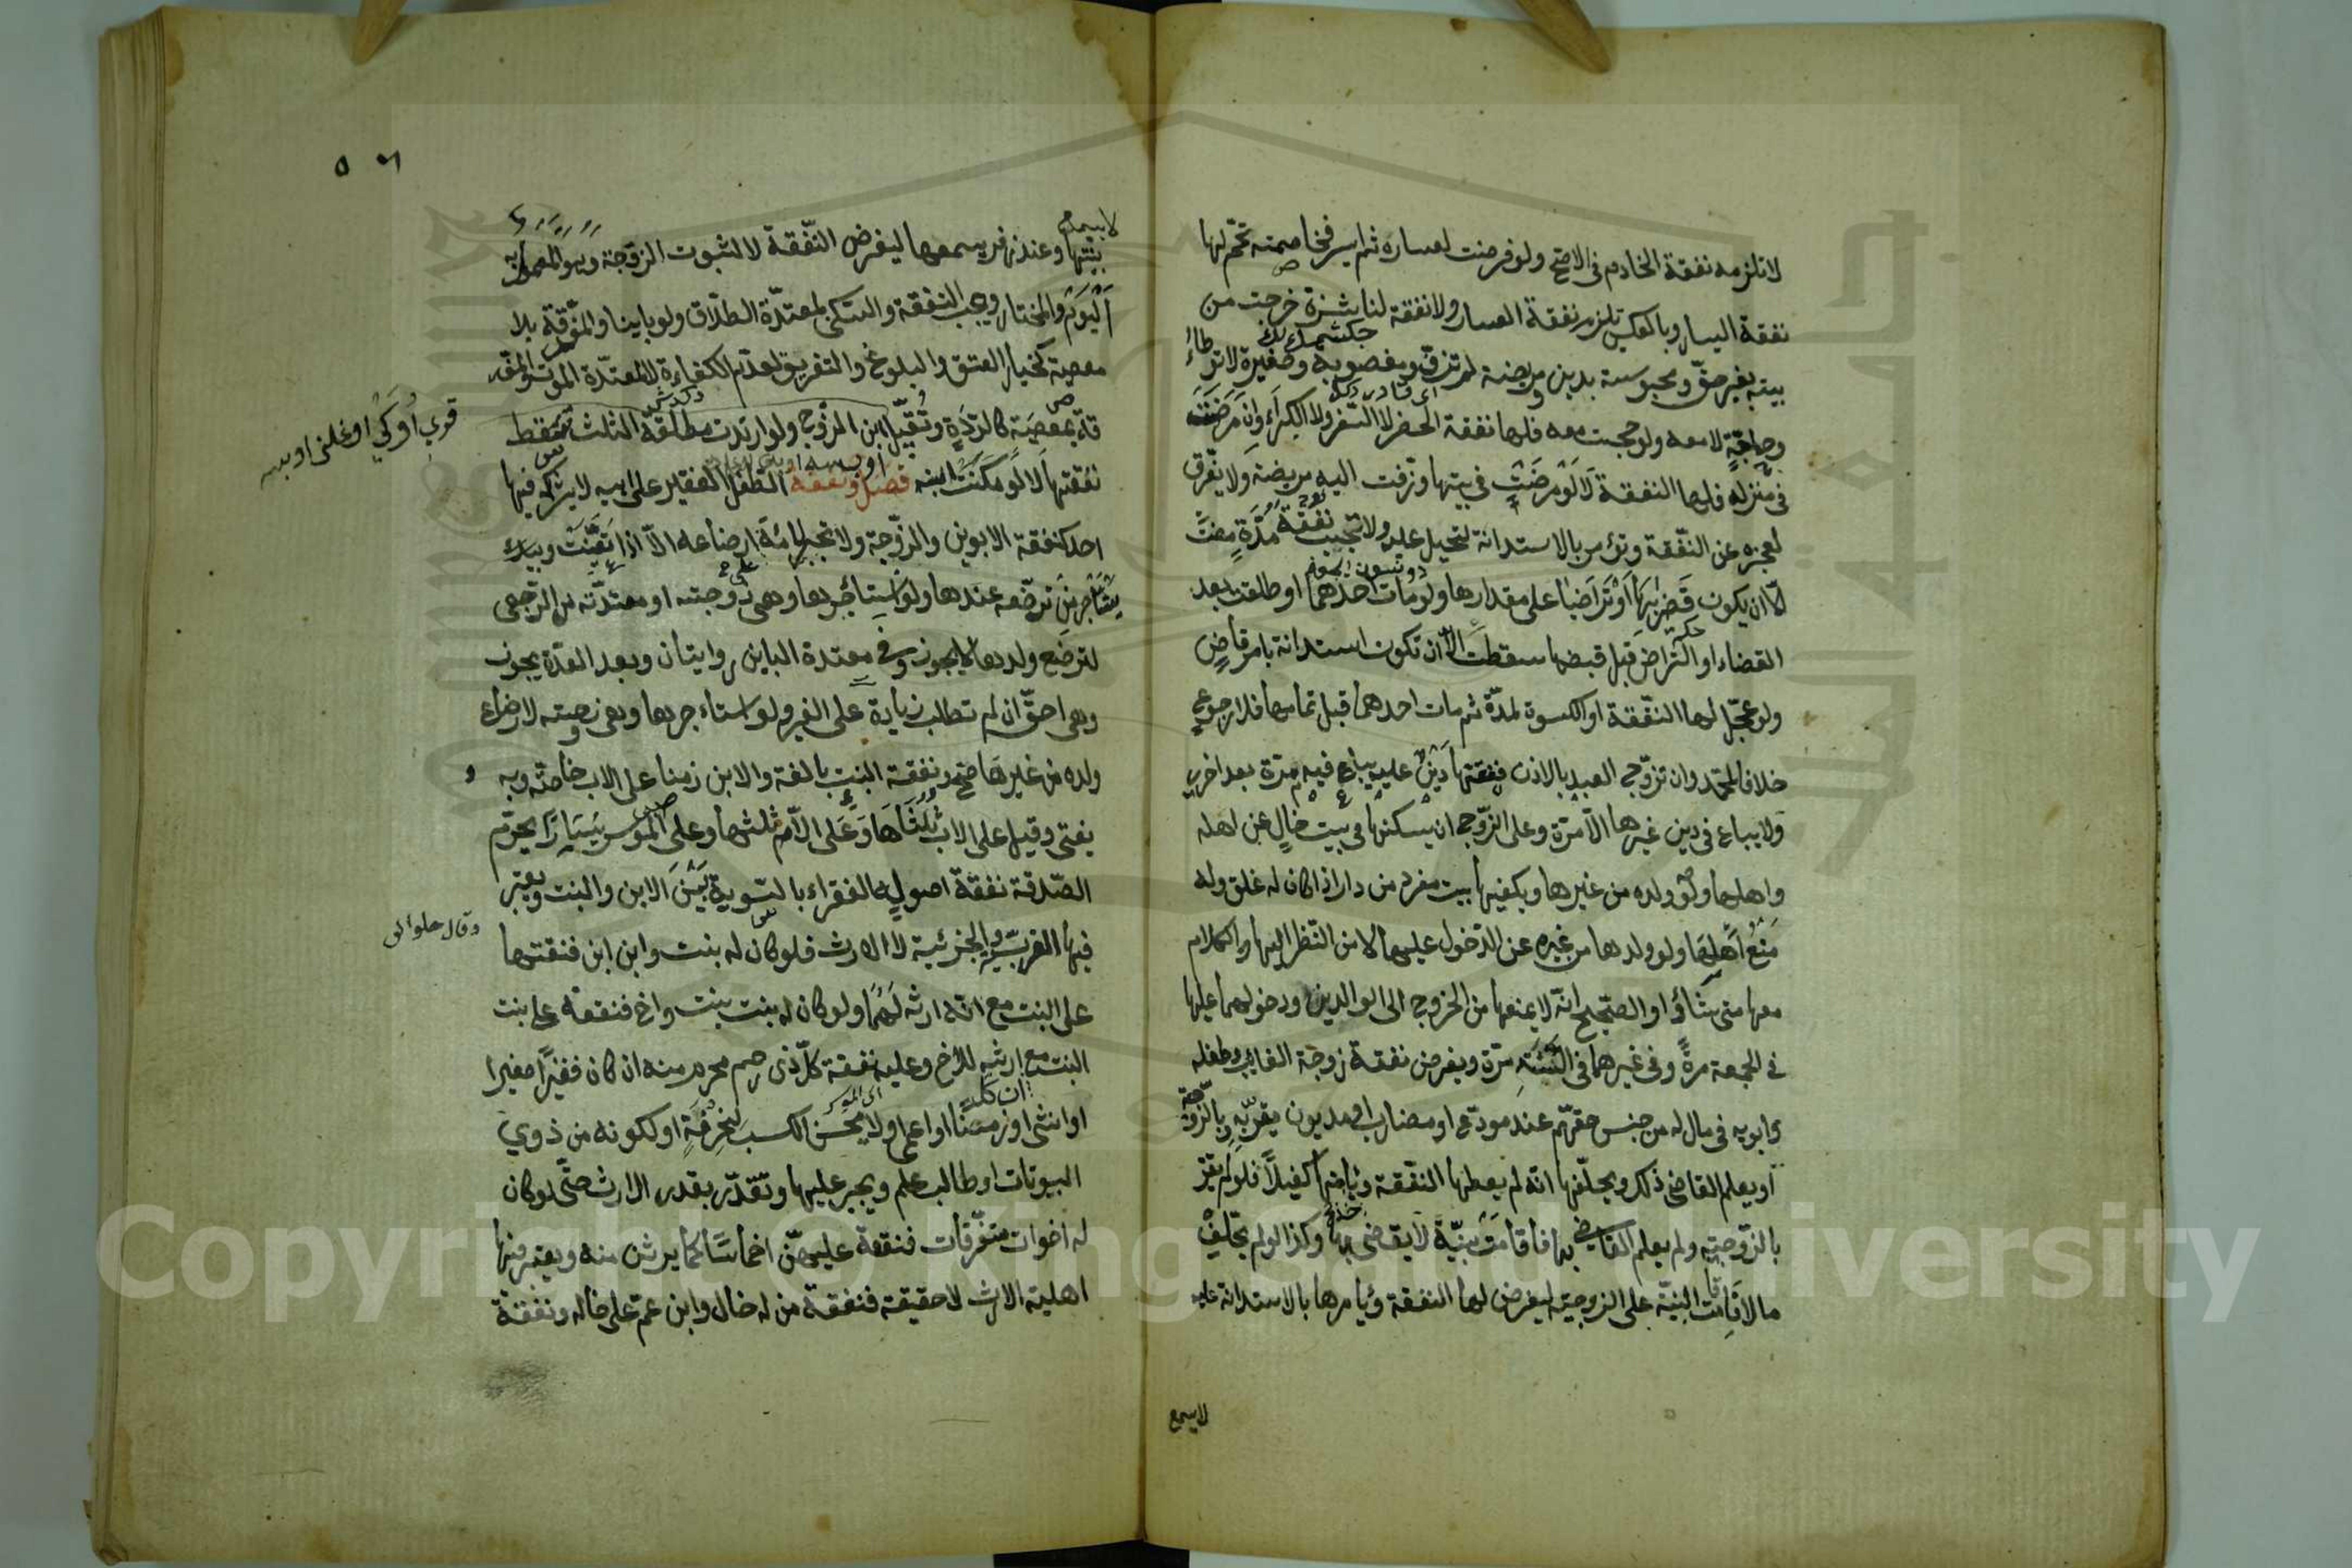 لا تلزمه نفقة الخادم في الاصح ولو فرضت لعساره ثم ايسر فخاصمته تمم لها
نفقة اليسار وبالعكس تلزم نفقة العسار ولا نفقة لناشزة خرجت من
بيته بغير حق ومحبوسة بدين ومريضة لم تزف ومغصوبة وصغيرة لا توطاء
وحاجة لا معه ولو حجت معه فلها نفقة الحضر لا السفر ولا الكراء وان مرضت
في منزله فلها النفقة لا لو مرضت في بيتها وزفت اليه مريضة ولا يفرق
لعجزه عن النفقة وتؤمر بالاستدانة لتحيل عليه ولا تجب نفقة مدة مضت
الا ان يكون قضي بها او تراضيا على مقدارها ولو مات احدهما او طلقت بعد
القضاء او التراضي قبل قبضها سقطت الا ان تكون استدانة بامر قاض
ولو عجل لها النفقة او الكسوة لمدة ثم مات احدهما قبل تمامها فلا رجوع
خلافا لمحمد وان تزوج العبد بالاذن فنفقتها دين عليه يباع فيه مرة بعد اخرى
ولا يباع في دين غيرها الا مرة وعلى الزوج ان يسكنها في بيت خال عن اهله
واهلها ولو ولده من غيرها ويكفيها بيت مفرد من دار اذا كان له غلق وله
منع اهلها ولو ولدها من غيره عن الدخول عليها لا من النظر اليها والكلام
معها متى شاؤا والصحيح انه لا يمنعها من الخروج الى الوالدين ودخولهما عليها
في الجمعة مرة وفي غيرهما في السنة مرة ويفرض نفقة زوجة الغايب وطفله
وابويه في مال له من جنس حقهم عند مودع او مضارب او مديون يقر به وبالزوجة
او يعلم القاضي ذلك ويحلفها انه لم يعطها النفقة وياخذ منها كفيلا فلو لم يقر
بالزوجية ولم يعلم القاضي بها فاقامت بينة لا يقضى بها وكذا لو لم يخلف
مالا فاقامت البينة على الزوجية ليفرض لها النفقة ويامرها بالاستدانة عليه
لا يسمع
٥٦
لا يسمع
بينتها وعند زفر يسمعها ليفرض النفقة لا لثبوت الزوجة وهو المعمول به
اليوم والمختار وتجب النفقة والسكنى لمعتدة الطلاق ولو باينا والمفرقة بلا
معصية كخيار العتق والبلوغ والتفريق لعدم الكفاءة لا لمعتدة الموت والمفر
قة بمعصية كالردة وتقبيل ابن الزوج ولو ارتدت مطلقة الثلث سقط
نفقتها لا لو مكنت ابنه فصل ونفقة الطفل الفقير على ابيه لا يشركه فيها
احد كنفقة الابوين والزوجة ولا تجبر امه ارضاعه الا اذا تعينت
يستاجر من ترضعه عندها ولو استأجرها وهي زوجته او معتدته من الرجعي
لترضع ولدها لا يجوز وفي معتدة الباين روايتان وبعد العدة يجوز
وهي احق ان لم تطلب زيادة على الغير ولو استاءجرها وهي زوجته لارضاع
ولده من غيرها صح ونفقة البنت بالغة والابن زمنا على الاب خاصة وبه
يفتى وقيل على الاب ثلثاها وعلى الام ثلثها وعلى الموسر يسارا يحرم
الصدقة نفقة اصوله الفقراء بالسوية بين الابن والبنت ويعتبر
فيها القرب والجزئية لا الارث فلو كان له بنت وابن ابن فنفقتها
على البنت مع ان ارثه لهما ولو كان له بنت بنت واخ فنفقته على بنت
البنت مع ارثه للاخ وعليه نفقة كل ذي رحم محرم منه ان كان فقيرا صغيرا
او انثى او زمنا او اعمى او لا يحسن الكسب لخرقه او لكونه من ذوي
البيوتات او طالب علم ويجبر عليها وتقدر بقدر الارث حتى لو كان
له اخوات متفرقات فنفقة عليهن اخماسا كما يرثن منه ويعتبر فيها
اهلية الارث لا حقيقته فنفقة من له خال وابن عم على خاله ونفقة
وقال حلوانى
Copyright © King Saud University